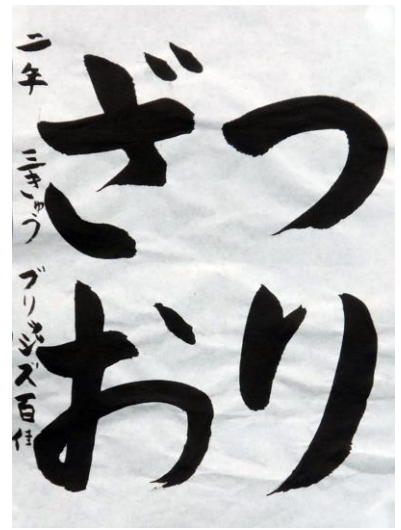 つり
ざお
二年 三きゅう ブリッジズ百佳